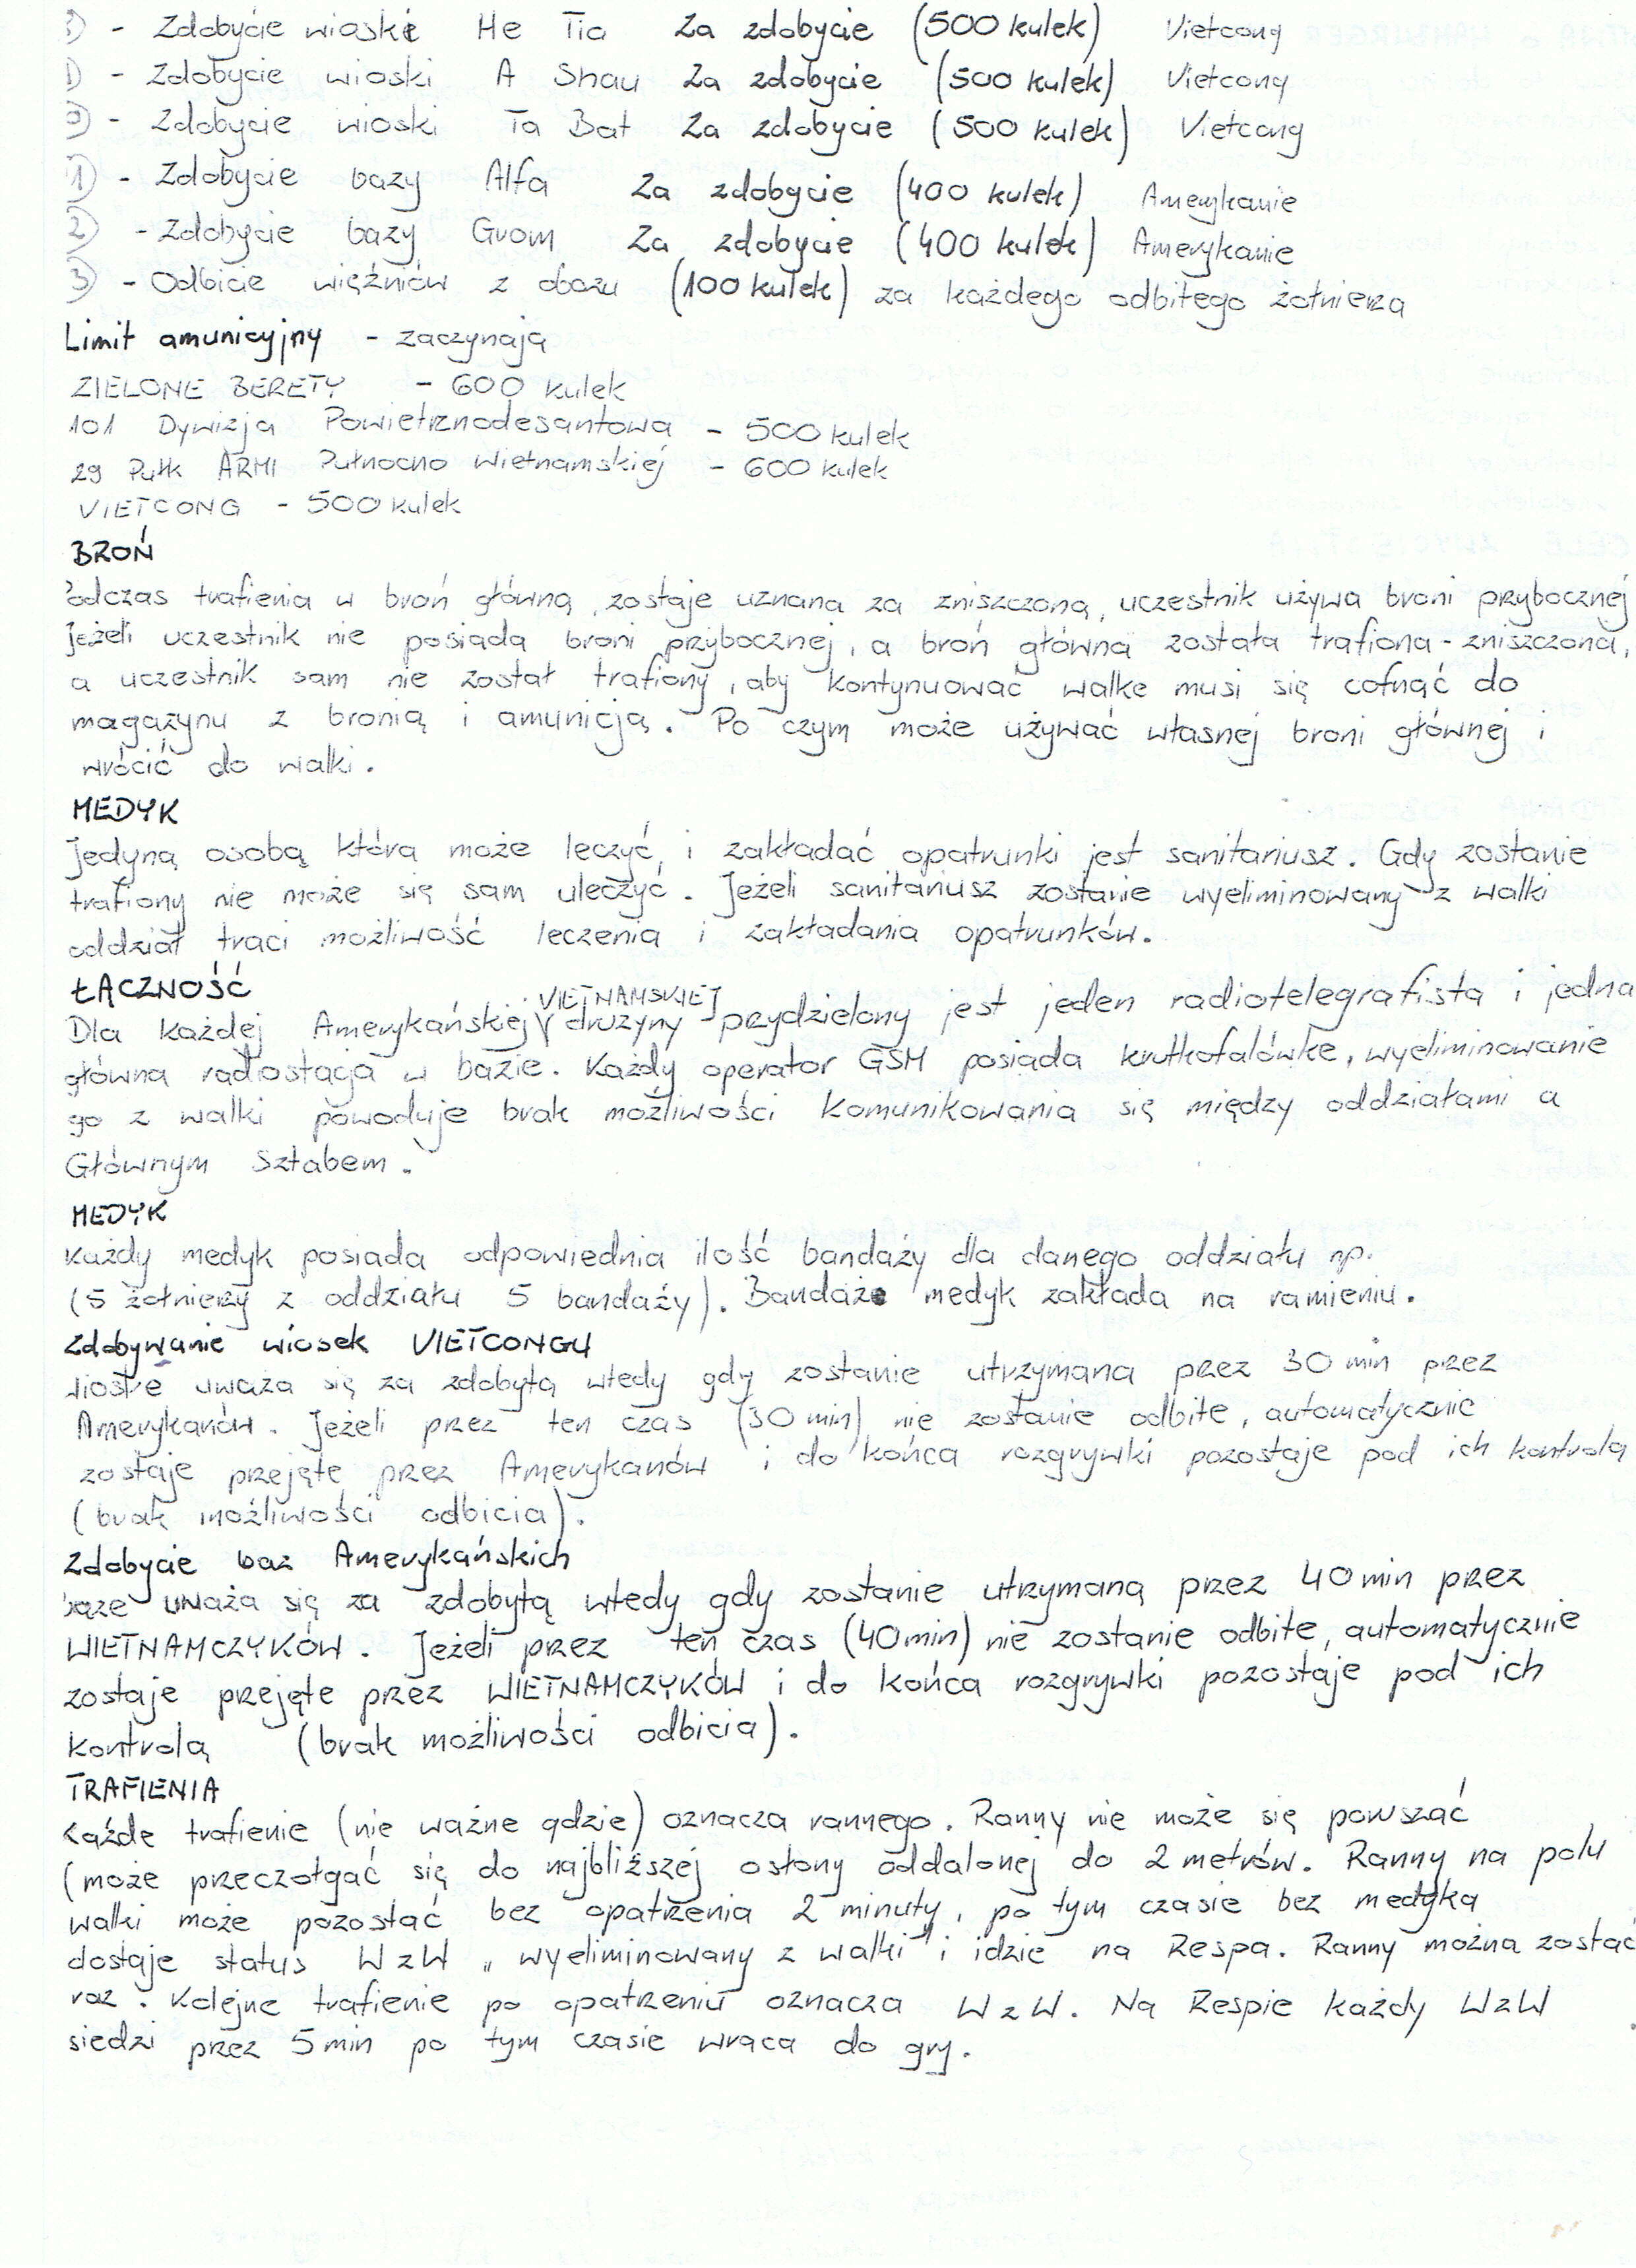 - Zdobycie wioski He Tia Za zdobycie (500 kulek) Vietcong
- Zdobycie wioski A Shau Za zdobycie (500 kulek) Vietcong
- Zdobycie wioski Ta Bat Za zdobycie (500 kulek) Vietcong
1) - Zdobycie bazy Alfa Za zdobycie (400 kulek) Amerykanie
2) - Zdobycie bazy Grom Za zdobycie (400 kulek) Amerykanie
3) - Odbicie więźniów z obozu (100 kulek) za każdego odbitego żołnierza
Limit amunicyjny - zaczynają
ZIELONE BERETY - 600 kulek
101 Dywizja Powietrznodesantowa - 500 kulek
29 Pułk ARMI Pułnocno Wietnamskiej - 600 kulek
VIETCONG - 500 kulek
BROŃ
Podczas trafienia w broń główną, zostaje uznana za zniszczoną, uczestnik używa broni przybocznej
Jeżeli uczestnik nie posiada broni przybocznej, a broń główna została trafiona - zniszczona,
a uczestnik sam nie został trafiony, aby kontynuować walke musi się cofnąć do
magazynu z bronią i amunicją. Po czym może używać własnej broni głównej i
wrócić do walki.
MEDYK
Jedyną osobą która może leczyć, i zakładać opatrunki jest sanitariusz. Gdy zostanie
trafiony nie może się sam uleczyć. Jeżeli sanitariusz zostanie wyeliminowany z walki
oddział traci możliwość leczenia i zakładania opatrunków.
ŁĄCZNOŚĆ
VIETNAMSKIEJ
Dla każdej Amerykańskiej drużyny prydzielony jest jeden radiotelegrafista i jedna
główna radiostacja w bazie. Każdy operator GSM posiada krutkofalówke, wyeliminowanie
go z walki powoduje brak możliwości komunikowania się między oddziałami a
Głównym Sztabem.
MEDYK
Każdy medyk posiada odpowiednia ilość bandaży dla danego oddziału np.
(5 żołnierzy z oddziału 5 bandaży). Bandaże medyk zakłada na ramieniu.
Zdobywanie wiosek VIETCONGU
Wioskę uważa się za zdobytą wtedy gdy zostanie utrzymana przez 30 min przez
Amerykanów. Jeżeli przez ten czas (30 min) nie zostanie odbite, automatycznie
zostaje prejęte przez Amerykanów i do końca rozgrywki pozostaje pod ich kontrolą
(brak możliwości odbicia).
Zdobycie baz Amerykańskich
baze uważa się za zdobytą wtedy gdy zostanie utrzymaną przez 40 min przez
WIETNAMCZYKÓW. Jeżeli przez ten czas (40min) nie zostanie odbite, automatycznie
zostaje prejęte przez WIETNAMCZYKÓW i do końca rozgrywki pozostaje pod ich
kontrolą (brak możliwości odbicia).
TRAFIENIA
Każde trafienie (nie ważne gdzie) oznacza rannego. Ranny nie może się powszać
(może przeczołgać się do najbliższej osłony oddalonej do 2 metrów. Ranny na polu
walki może pozostać bez opatrzenia 2 minuty, po tym czasie bez medyka
dostaje status WzW „wyeliminowany z walki" i idzie na Respa. Ranny można zostać
raz. Kolejne trafienie po opatrzeniu oznacza WzW. Na Respie każdy WzW
siedzi przez 5 min po tym czasie wraca do gry.